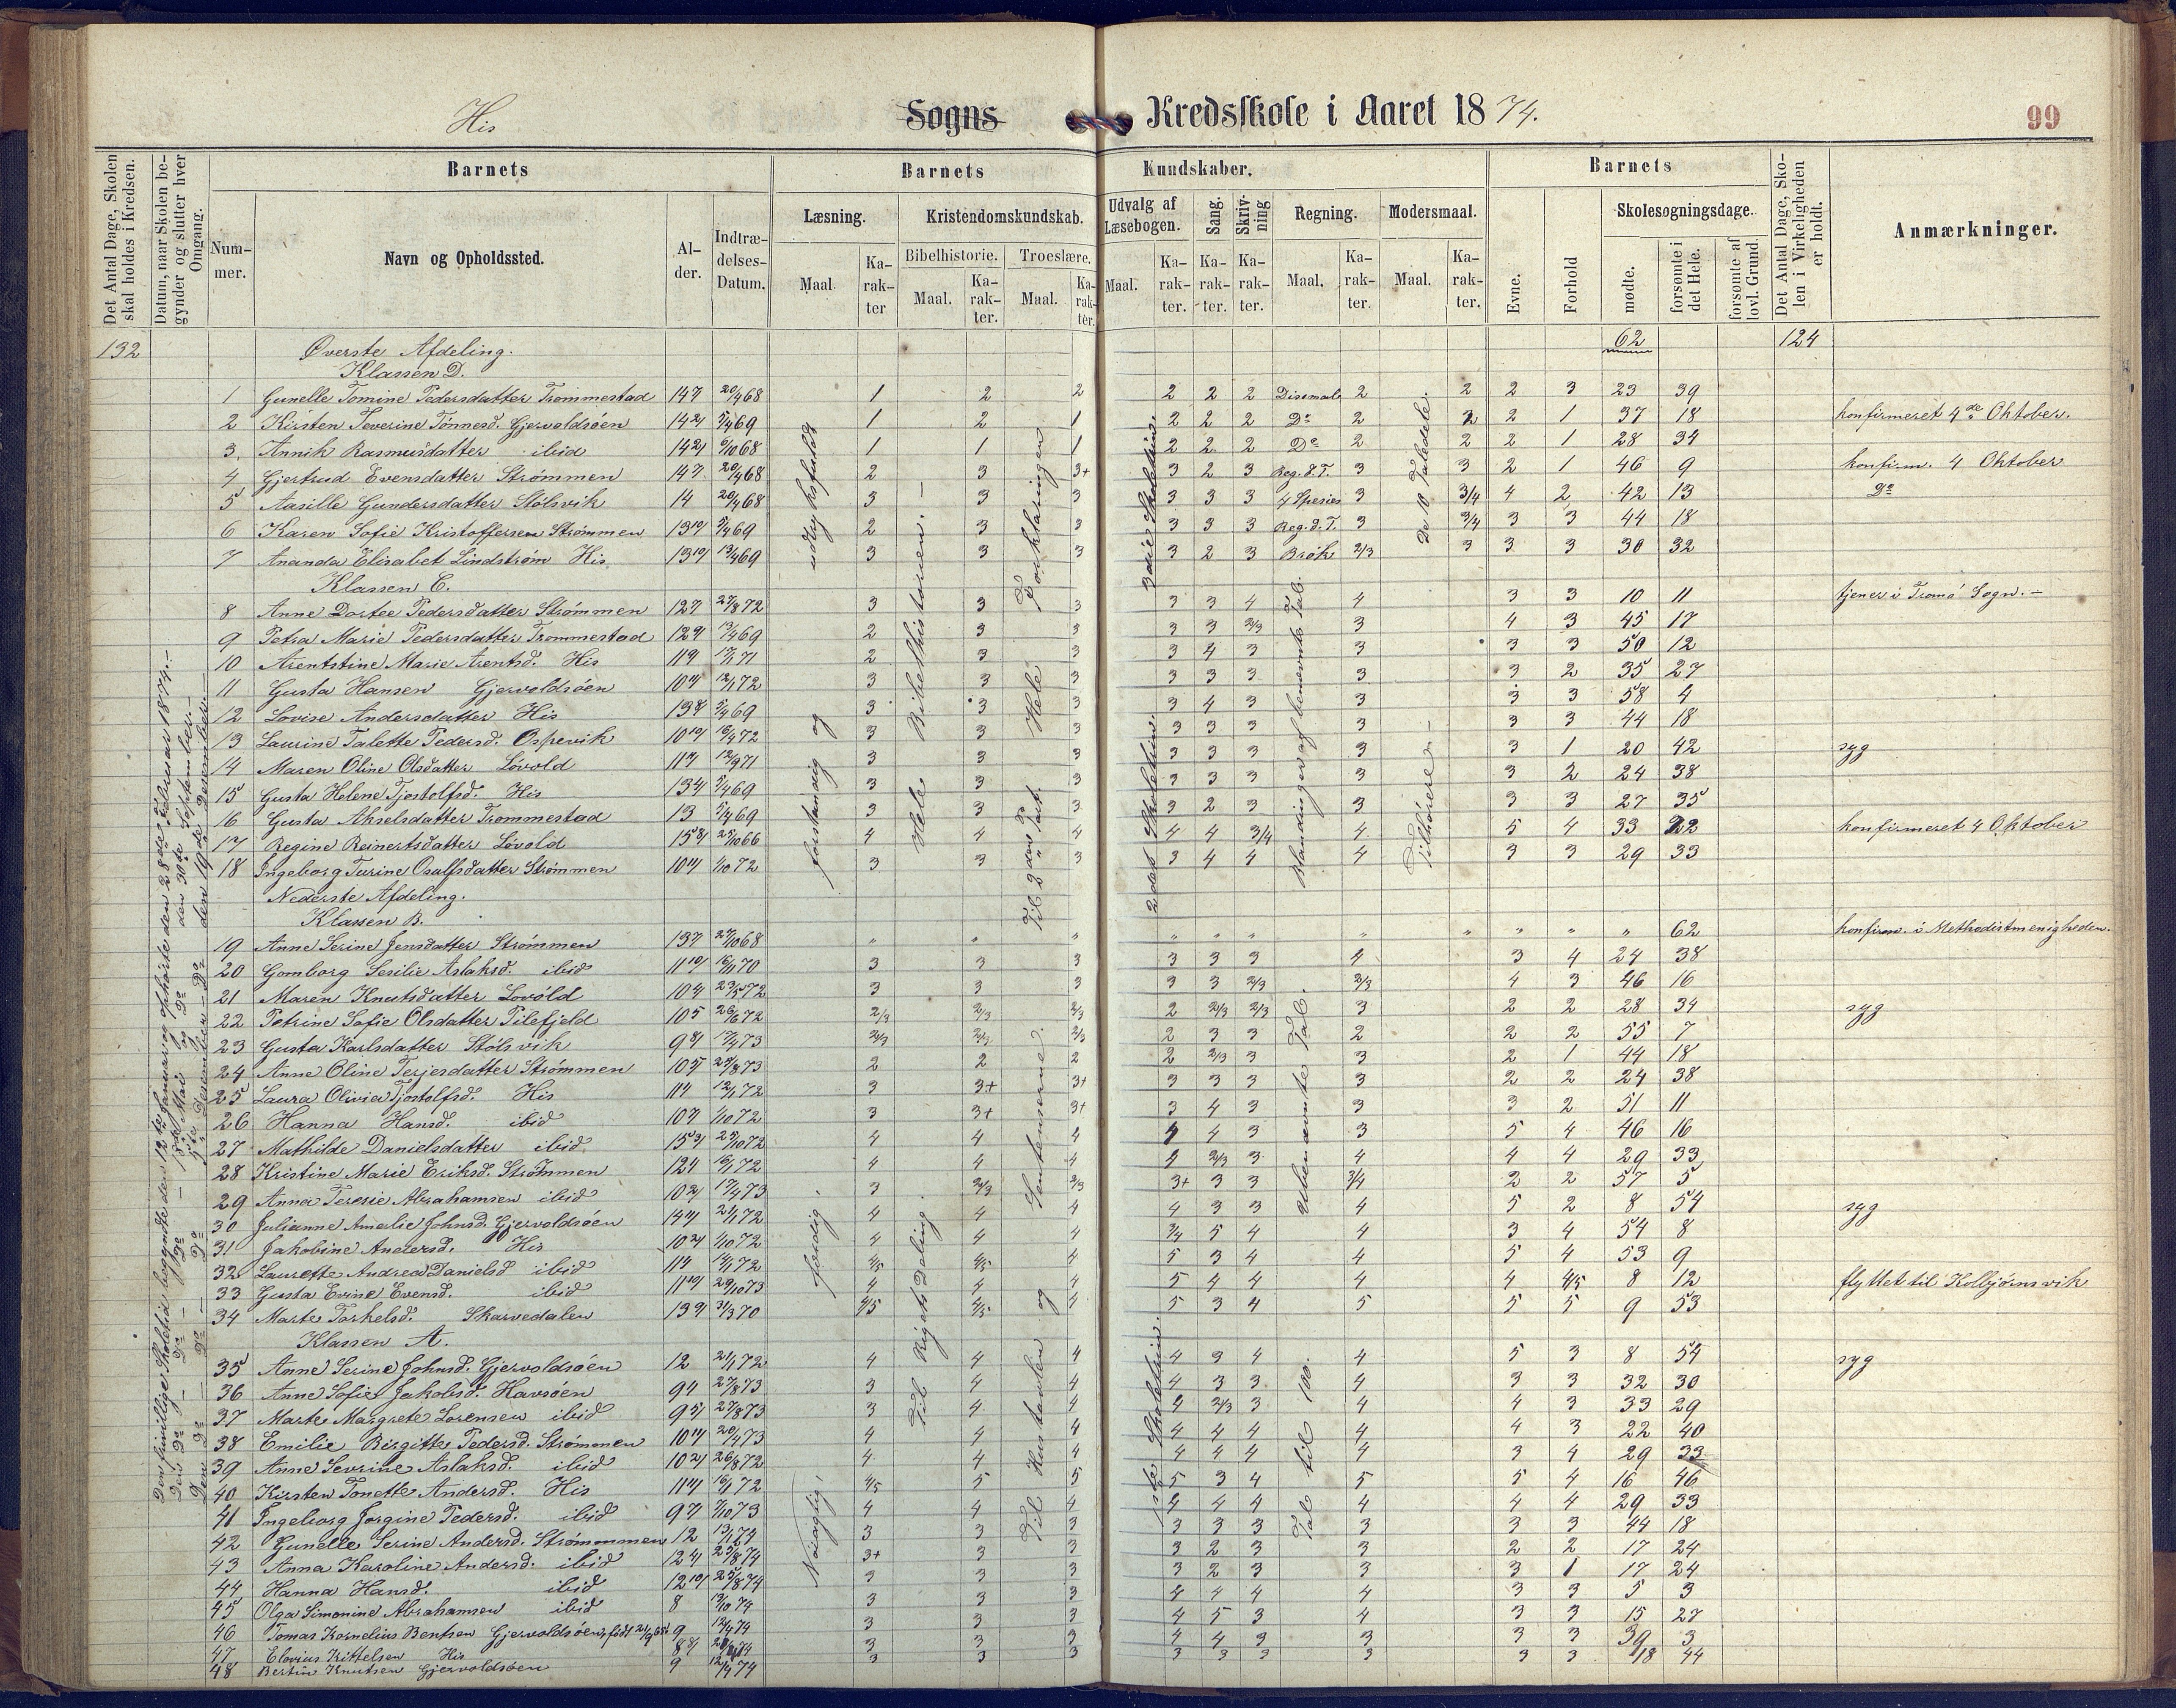 His Sogns Kredsskole i Aaret 1874. 99
Det Antal Dage, Skolen skal holdes i Kredsen.
Datum, naar Skolen begynder og slutter hver Omgang.
Barnets
Nummer.
Navn og Opholdssted.
Alder.
Indtrædelses-Datum.
Barnets Kundskaber.
Læsning.
Maal.
Karakter
Kristendomskundskab.
Bibelhistorie.
Maal.
Karakter.
Troeslære.
Maal.
Karakter.
Udvalg af Læsebogen.
Maal.
Karakter.
Sang.
Karakter.
Skrivning
Karakter.
Regning.
Maal.
Karakter.
Modersmaal.
Maal.
Karakter.
Barnets
Evne.
Forhold
Skolesøgningsdage.
mødte.
forsømte i det Hele.
forsømte af lovl. Grund.
Det Antal Dage, Skolen i Virkeligheden er holdt.
Anmærkninger.
132 Øverste Afdeling. 62 124
Klassen D.
1 Gunelle Tomine Pedersdatter Trommestad 14 20/4 68 1 2 2 2 2 2 Disemale 2 2 2 3 23 39
2 Kirsten Severine Tønnesd. Gjervoldsøen 14 5/4 69 1 2 1 2 2 2 Do 2 2 2 1 37 18 konfirmeret 4de Oktober.
3 Annik Rasmusdatter ibid 14 6/10 68 1 1 1 2 2 2 Do 2 2 2 1 28 34
4 Gjertrud Evensdatter Strømmen 14 20/4 68 2 3 3+ 3 2 3 Reg. d. T. 3 3 2 1 46 9 konfirm. 4 Oktober
5 Aasille Gundersdatter Stølsvik 14 20/4 68 3 3 3 3 3 3 4 Spesies 3 3/4 4 2 42 13 Do
6 Karen Sofie Kristoffersen Strømmen 13 5/4 69 2 3 3 3 3 3 Reg. d. T. 3 3/4 3 3 44 18
7 Ananda Elisabet Lindstrøm His 13 13/4 69 3 3 3 3 2 3 Brøk 2/3 3 3 3 30 32
Klassen C.
8 Anne Dortee Pedersdatter Strømmen 12 27/8 72 3 3 3 3 3 4 4 3 3 10 11 tjener i Tromø Sogn.–
9 Petra Marie Pedersdatter Trommestad 12 13/4 69 2 3 3 3 3 2/3 3 4 3 45 17
10 Arentstine Marie Arentsd. His 11 2 3 3 3 4 3 3 3 3 50 12
11 Gusta Hansen Gjervoldsøen 10 12/1 72 3 3 3 3 3 3 3 3 2 35 27
12 Lovise Andersdatter His 13 5/4 69 3 3 3 3 4 3 3 3 3 58 4
13 Laurine Talette Pedersd. Ospevik 10 16/4 72 3 3 3 3 3 3 3 3 3 44 18
14 Maren Oline Olsdatter Løvold 11 12/9 71 3 3 3 3 3 3 3 3 1 20 42 syg
15 Gusta Helene Tjostolfsd. His 13 5/4 69 3 3 3 3 3 3 3 3 2 24 38
16 Gusta Akselsdatter Trommestad 13 5/4 69 3 3 3 3 2 3 3 3 3 27 35
17 Regine Reinertsdatter Løvold 15 4 4 4 4 4 3/4 4 5 4 33 22 konfirmeret 4 Oktober
18 Ingeborg Turine Osulfsdatter Strømmen 10 1/10 72 3 3 3 3 4 4 4 3 3 29 33
Nederste Afdeling.
Klassen B.
19 Anne Serine Jensdatter Strømmen 13 27/10 68 " " " " " " " " " " " 62 konfirm. i Methodistmenigheden.
20 Gomborg Sesilie Aslaksd. ibid 11 3 3 3 3 3 3 4 3 4 24 38
21 Maren Knutsdatter Løvold 10 23/5 72 3 3 3 3 3 2/3 2/3 4 3 46 16
22 Petrine Sofie Olsdatter Pilefjeld 10 26/6 72 2/3 2/3 2/3 2 2/3 2/3 3 2 2 28 34 syg
23 Gusta Karlsdatter Stølsvik 9 17/4 73 2/3 2/3 2/3 2 3 3 2 2 2 55 7
24 Anne Oline Terjesdatter Strømmen 10 2 2 2 2 2/3 3 3 2 1 44 18
25 Laura Olivia Tjostolfsd. His 11 12/1 72 3 3+ 3+ 3 3 3 3 2 2 24 38
26 Hanna Hansd. ibid 10 1/10 72 3 3+ 3+ 3 4 3 3 3 2 51 11
27 Mathilde Danielsdatter ibid 15 4 4 4 4 4 3 3 5 4 46 16
28 Kristine Marie Eriksd. Strømmen 12 4 4 4 4 2/3 3 4 4 4 29 33
29 Anna Teresie Abrahamsen ibid 10 17/4 73 3 2/3 2/3 3+ 3 3 3/4 2 2 57 5
30 Julianne Amalie Johnsd. Gjervoldsøen 14 21/1 72 4 4 4 4 3 3 4 5 2 8 54 syg
31 Jakobine Andersd. His 10 1/10 72 4 4 4 3/4 5 4 4 3 4 54 8
32 Laurette Andrea Danielsd ibid 11 4/5 4/5 4 5 3 4 4 5 4 53 9
33 Gusta Evine Evensd. ibid 11 29/10 73 4 4 4 5 4 4 4 4 4/5 8 12 flyttet til Kolbjørnsvik
34 Marte Torkelsd. Skarvedalen 13 31/3 70 4/5 4/5 4 5 3 4 5 5 5 9 53
Klassen A.
35 Anne Serine Johnsd. Gjervoldsøen 12 21/1 72 4 4 4 4 3 4 4 5 3 8 54 syg
36 Anne Sofie Jakobsd. Havsøen 9 27/8 73 3 4 4 4 3 3 4 3 3 32 30
37 Marte Margrete Lorensen ibid 9 27/8 73 3 4 4 4 2/3 3 4 4 3 33 29
38 Emilie Birgitte Pedersd. Strømmen 10 20/4 73 4 4 4 4 4 4 4 4 3 22 40
39 Anne Sevrine Aslaksd. ibid 10 26/8 72 4 4 4 4 4 4 4 3 4 29 33
40 Kirsten Tonette Andersd. His 11 16/1 72 4/5 5 5 5 3 4 5 5 4 16 46
41 Ingeborg Jorgine Pedersd. ibid 9 4 4 4 4 4 4 4 4 4 29 33
42 Gunelle Serine Andersd. Strømmen 12 13/1 74 3 3 3 3 3 3 3 3 3 44 18
43 Anna Karoline Andersd. ibid 12 25/8 74 3+ 3 3 3 2 3 3 2 2 17 24
44 Hanna Hansd. ibid 12 25/8 74 3 3 3 3 2 3 3 3 1 17 24
45 Olga Simonine Abrahamsen ibid 8 3 3 3 4 4 4 4 3 3 5 3
46 Tomas Kornelius Bentsen Gjervoldsøen, født 9 3 3 3 4 5 3 4 3 3 15 27
47 Elovius Kittelsen His 8 3 3 3 4 4 3 3 3 3 39 3
48 Bertin Knutsen Gjervoldsøen 9 12/4 74 3 3 3 3 3 3 3 3 3 18 44
udtryksfuldt
og
forstandig
færdig
Nøiagtig,
Hele Bibelhistorien.–
Til Rigets Deling.
Hele Forklaringen
Til 2den Part.
Til Hustavlen og Sentenserne.
3die Skoletrin.
2det Skoletrin.
1ste Skoletrin.
Blandinger af benævnte Tal.
Ubenævnte Tal.
Tal til 100.
De 10 Taledele.
Tilhørere–